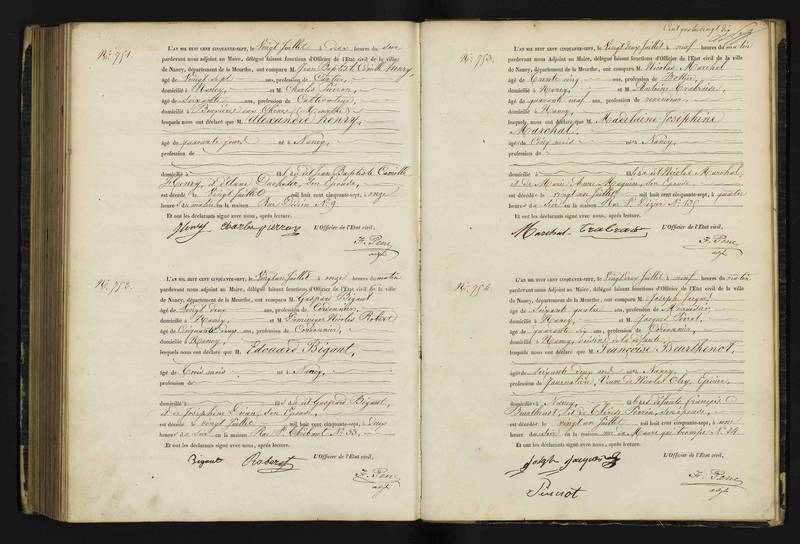 No. 751.
L'AN MIL HUIT CENT CINQUANTE-SEPT, le Vingt Juillet à deux heures du soir
pardevant nous adjoint au Maire, délégué faisant fonctions d'Officier de l'Etat civil de la ville
de Nancy, département de la Meurthe, ont comparu M. Jean Baptiste Camille Henry,
âgé de Vingt sept ans, profession de
domicilié à Nancy, et M. Charles Pierron,
âgé de soixante ans, profession de Cultivateur,
domicilié à (Meurthe)
lesquels nous ont déclaré que M. Alexandre Henry,
âgé de quarante jours né à Nancy,
profession de
domicilié à fils de dit Jean Baptiste Camille
Henry, et d'Eliane son Epouse,
est décédé le Vingt Juillet mil huit cent cinquante-sept, à onze
heures du matin en la maison Rue No. 9.
Et ont les déclarants signé avec nous, après lecture.
Henry Charles Pierron L'Officier de l'Etat civil,
F. Ponc
adjt
No. 752.
L'AN MIL HUIT CENT CINQUANTE-SEPT, le Vingt un Juillet à onze heures du matin
pardevant nous adjoint au Maire, délégué faisant fonctions d'Officier de l'Etat civil de la ville
de Nancy, département de la Meurthe, ont comparu M. Gaspard Bigaut
âgé de Vingt ans, profession de Cordonnier,
domicilié à Nancy, et M. Nicolas
âgé de Cinquante ans, profession de Cordonnier,
domicilié à Nancy,
lesquels nous ont déclaré que M. Edouard Bigaut,
âgé de trois mois né à Nancy,
profession de
domicilié à fils de dit Gaspard Bigaut,
et de Joséphine son Epouse,
est décédé le vingt Juillet mil huit cent cinquante-sept, à deux
heures du soir en la maison Rue St. Thiébaut No. 33.
Et ont les déclarants signé avec nous, après lecture.
Bigaut L'Officier de l'Etat civil,
F. Ponc
adjt
Cent quatre vingt dix
No. 753.
L'AN MIL HUIT CENT CINQUANTE-SEPT, le Vingt deux Juillet à neuf heures du matin
pardevant nous adjoint au Maire, délégué faisant fonctions d'Officier de l'Etat civil de la ville
de Nancy, département de la Meurthe, ont comparu M. Nicolas Marchal
âgé de trente cinq ans, profession de Bottier,
domicilié à Nancy, et M. Antoine
âgé de quarante neuf ans, profession de
domicilié à Nancy,
lesquels nous ont déclaré que M. Madelaine Joséphine
Marchal,
âgé de Cinq mois né à Nancy,
profession de
domicilié à fille de dit Nicolas Marchal,
et de Marie Anne son Epouse,
est décédé le vingt un Juillet mil huit cent cinquante-sept, à quatre
heures du soir en la maison Rue St. Dizier No. 135
Et ont les déclarants signé avec nous, après lecture.
Marchal L'Officier de l'Etat civil,
F. Ponc
adjt
No. 754.
L'AN MIL HUIT CENT CINQUANTE-SEPT, le Vingt deux Juillet à neuf heures du matin
pardevant nous adjoint au Maire, délégué faisant fonctions d'Officier de l'Etat civil de la ville
de Nancy, département de la Meurthe, ont comparu M. Joseph
âgé de soixante quatre ans, profession de Menuisier,
domicilié à Nancy, et M. Jacques
âgé de quarante six ans, profession de Cordonnier,
domicilié à Nancy, voisins de la défunte
lesquels nous ont déclaré que M. Françoise Burthenot,
âgé de soixante deux ans né à Nancy,
profession de Journalière, Veuve de Nicolas
domicilié à Nancy, fille de défunts François
Burthenot, et de son épouse,
est décédé le vingt un Juillet mil huit cent cinquante-sept, à
heures du soir en la maison rue du Maure qui trompe No. 24
Et ont les déclarants signé avec nous, après lecture.
L'Officier de l'Etat civil,
F. Ponc
adjt